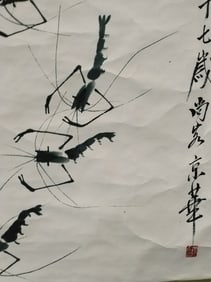 十七歲尚客京華